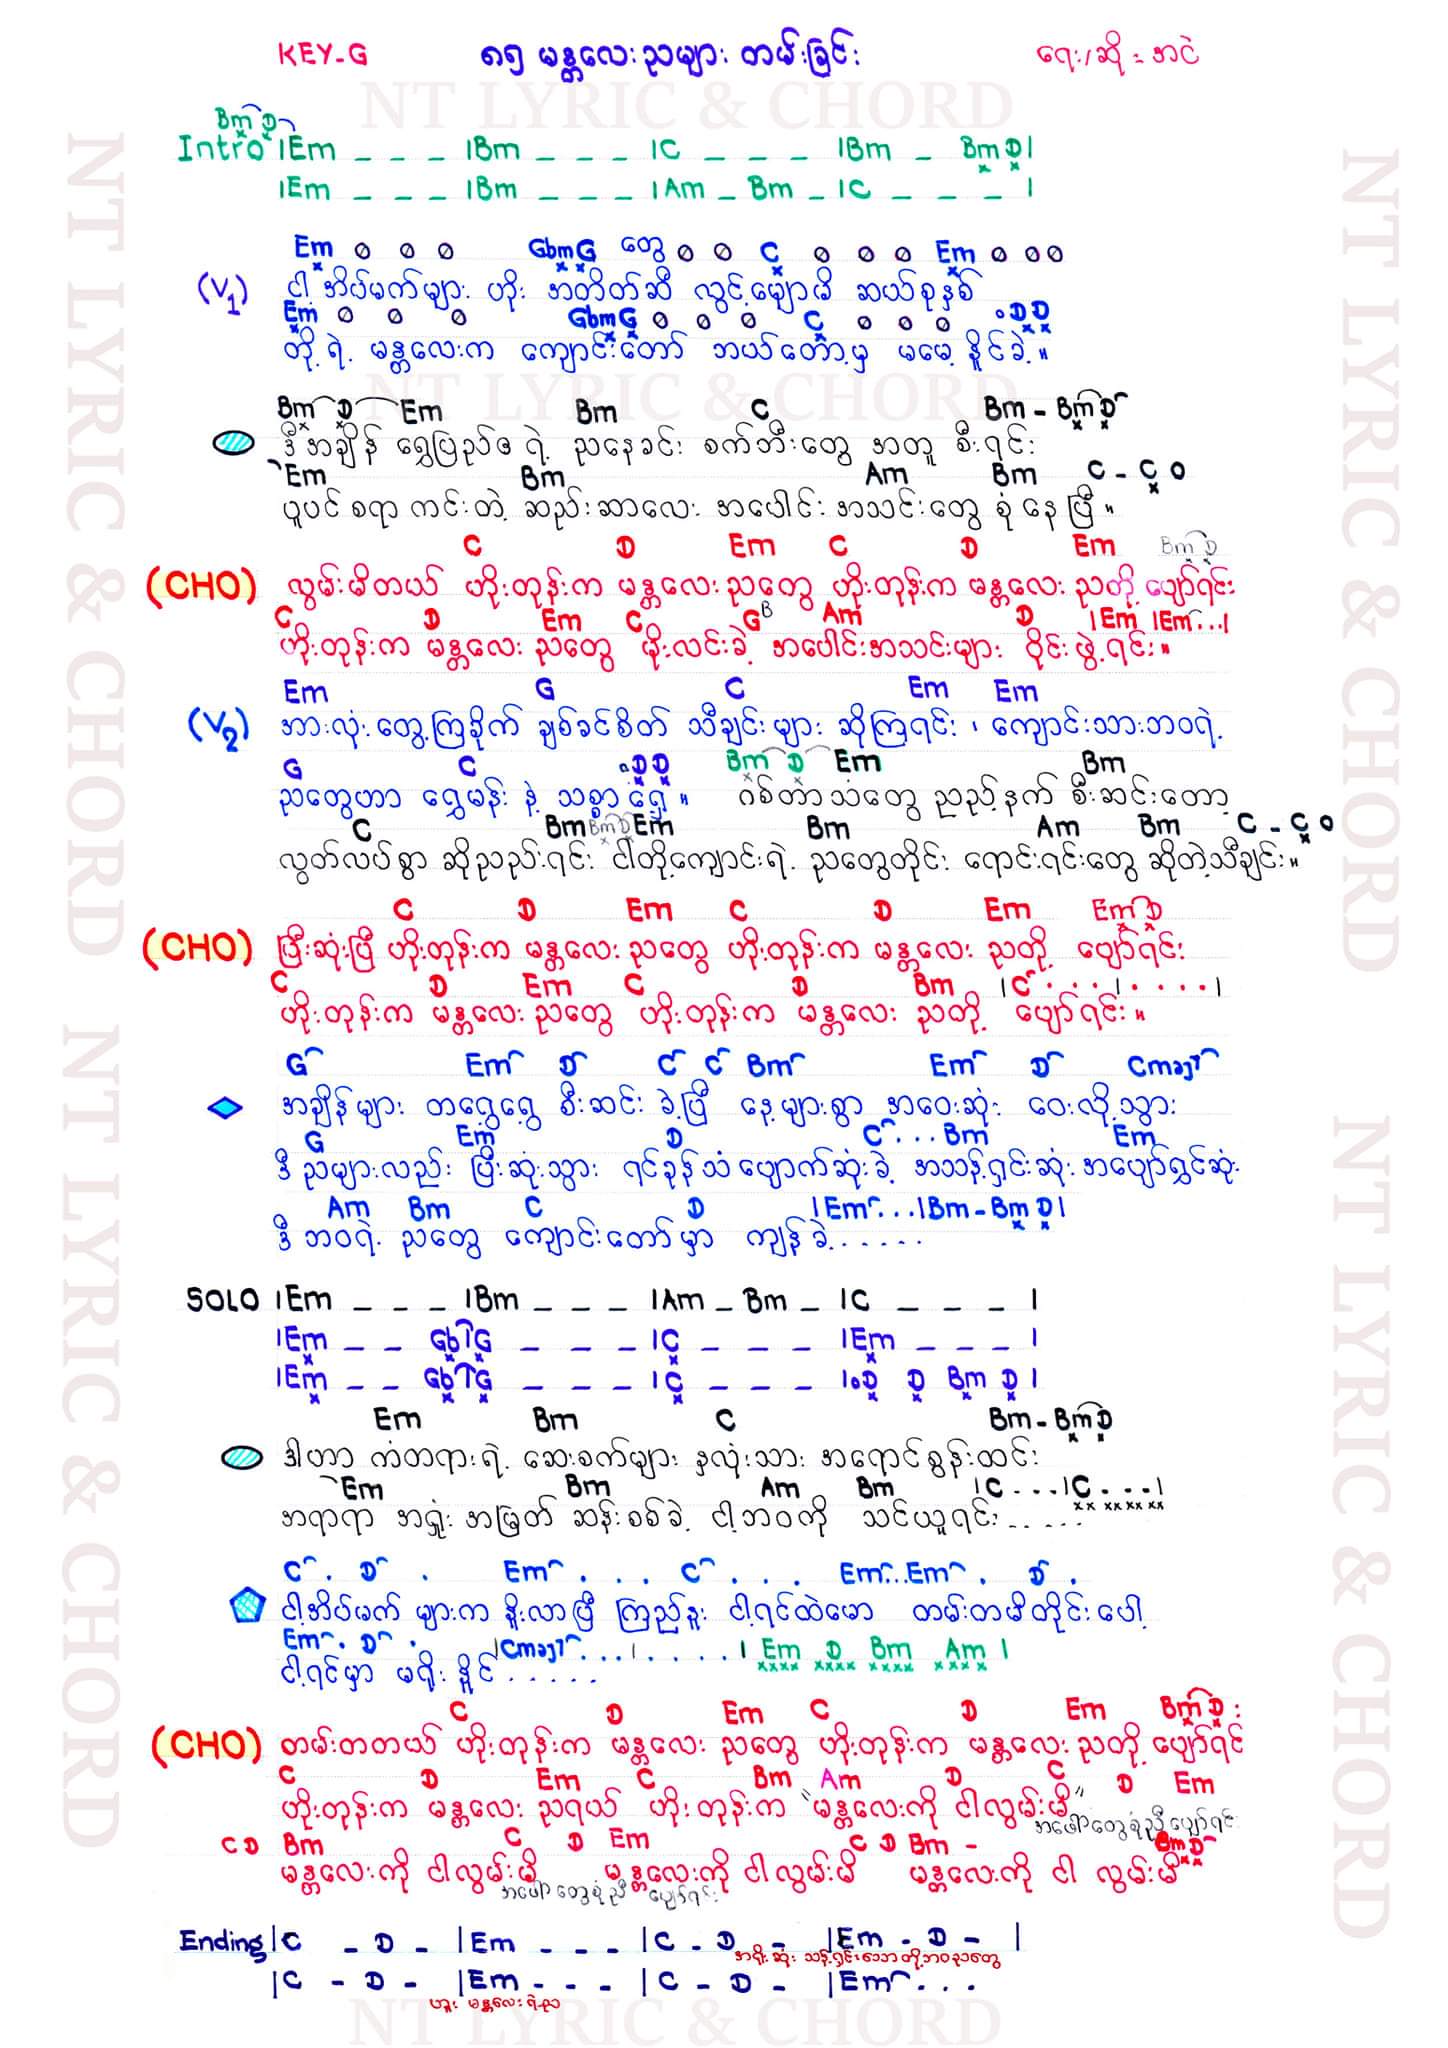 KEY-G ၈၅ မန္တလေးညများ တမ်းခြင်း ရေး/ဆို = အငဲ
NT LYRIC & CHORD
Bm D
Intro |Em _ _ _ |Bm _ _ _ |C _ _ _ |Bm _ Bm D|
|Em _ _ _ |Bm _ _ _ |Am _ Bm _ |C _ _ _ |
Em o o o Gbm G တွေ o o C o o o Em o o o
(V1) ငါ့အိပ်မက်များ ဟိုး အတိတ်ဆီ လွင့်မျောမိ ဆယ်စုနှစ်
Em o o o Gbm G o o o C o o o . D D
တို့ရဲ့ မန္တလေးက ကျောင်းတော် ဘယ်တော့မှ မမေ့နိုင်ခဲ့။
NT LYRIC & CHORD
Bm D Em Bm C Bm - Bm D
ဒီအချိန် ရွှေပြည်ဇရဲ့ ညနေခင်း စက်ဘီးတွေ အတူ စီးရင်း
Em Bm Am Bm C - C o
ပူပင်စရာ ကင်းတဲ့ ဆည်းဆာလေး အပေါင်း အသင်းတွေ စုံနေပြီ။
C D Em C D Em Bm D
(CHO) လွမ်းမိတယ် ဟိုးတုန်းက မန္တလေးညတွေ ဟိုးတုန်းက မန္တလေးညတို့ ပျော်ရင်း
C D Em C G B Am D |Em |Em...|
ဟိုးတုန်းက မန္တလေးညတွေ မိုးလင်းခဲ့ အပေါင်းအသင်းများ ဝိုင်းဖွဲ့ရင်း။
Em G C Em Em
(V2) အားလုံးတွေ့ကြခိုက် ချစ်ခင်စိတ် သီချင်းများ ဆိုကြရင်း ၊ ကျောင်းသားဘဝရဲ့
G C D D Bm D Em Bm
ညတွေဟာ ရွှေမန်း နဲ့ သစ္စာရွှေ။ ဂစ်တာသံတွေ ညည့်နက် စီးဆင်းတော့
C Bm Bm D Em Bm Am Bm C - C o
လွတ်လပ်စွာ ဆိုညည်းရင်း ငါတို့ကျောင်းရဲ့ ညတွေတိုင်း ရောင်းရင်းတွေ ဆိုတဲ့သီချင်း။
C D Em C D Em Em D
(CHO) ပြီးဆုံးပြီ ဟိုးတုန်းက မန္တလေးညတွေ ဟိုးတုန်းက မန္တလေးညတို့ ပျော်ရင်း
C D Em C D Bm |C...|....|
ဟိုးတုန်းက မန္တလေးညတွေ ဟိုးတုန်းက မန္တလေးညတို့ ပျော်ရင်း။
G Em D C C Bm Em D Cmaj7
အချိန်များ တရွေ့ရွေ့ စီးဆင်းခဲ့ပြီ နေ့များစွာ အဝေးဆုံး ဝေးလို့သွား
G Em D C...Bm Em
ဒီညများလည်း ပြီးဆုံးသွား ရင်ခုန်သံပျောက်ဆုံးခဲ့ အသန့်ရှင်းဆုံးအပျော်ရွှင်ဆုံး
Am Bm C D |Em...|Bm - Bm D|
ဒီဘဝရဲ့ ညတွေ ကျောင်းတော်မှာ ကျန်ခဲ့......
SOLO |Em _ _ _ |Bm _ _ _ |Am _ Bm _ |C _ _ _ |
|Em _ _ Gb G _ _ _ |C _ _ _ |Em _ _ _ |
|Em _ _ Gb G _ _ _ |C _ _ _ |.D D Bm D|
Em Bm C Bm - Bm D
ဒါဟာ ကံတရားရဲ့ ဆေးစက်များ နှလုံးသား အရောင်စွန်းထင်း
Em Bm Am Bm |C...|C...|
အရာရာ အရှုံး အမြတ် ဆန်းစစ်ခဲ့ ငါ့ဘဝကို သင်ယူရင်း.....
C . D . Em . . . C . . . Em..Em . D .
ငါ့အိပ်မက် များက နိုးလာပြီ ကြည်နူး ငါ့ရင်ထဲမော တမ်းတမိတိုင်းပေါ့
Em . D . |Cmaj7...|....| Em D Bm Am |
ငါ့ရင်မှာ မရိုးနိုင်.....
C D Em C D Em Bm D :
(CHO) တမ်းတတယ် ဟိုးတုန်းက မန္တလေးညတွေ ဟိုးတုန်းက မန္တလေးညတို့ ပျော်ရင်
C D Em C Bm Am D C D Em
ဟိုးတုန်းက မန္တလေးညရယ် ဟိုးတုန်းက "မန္တလေးကို ငါလွမ်းမိ"
အဖော်တွေစုံညီပျော်ရင်း
C D Bm C D Em C D Bm - Bm D
မန္တလေးကို ငါလွမ်းမိ မန္တလေးကို ငါလွမ်းမိ မန္တလေးကို ငါ လွမ်းမိ
အဖော်တွေစုံညီ ပျော်ရင်း
Ending |C - D - |Em - - - |C - D - |Em - D - |
အရိုးဆုံး သန့်ရှင်းသောတို့ဘဝညတွေ
|C - D - |Em - - - |C - D - |Em...
ဟူး မန္တလေးရဲ့ည
NT LYRIC & CHORD
NT LYRIC & CHORD
NT LYRIC & CHORD
NT LYRIC & CHORD
NT LYRIC & CHORD